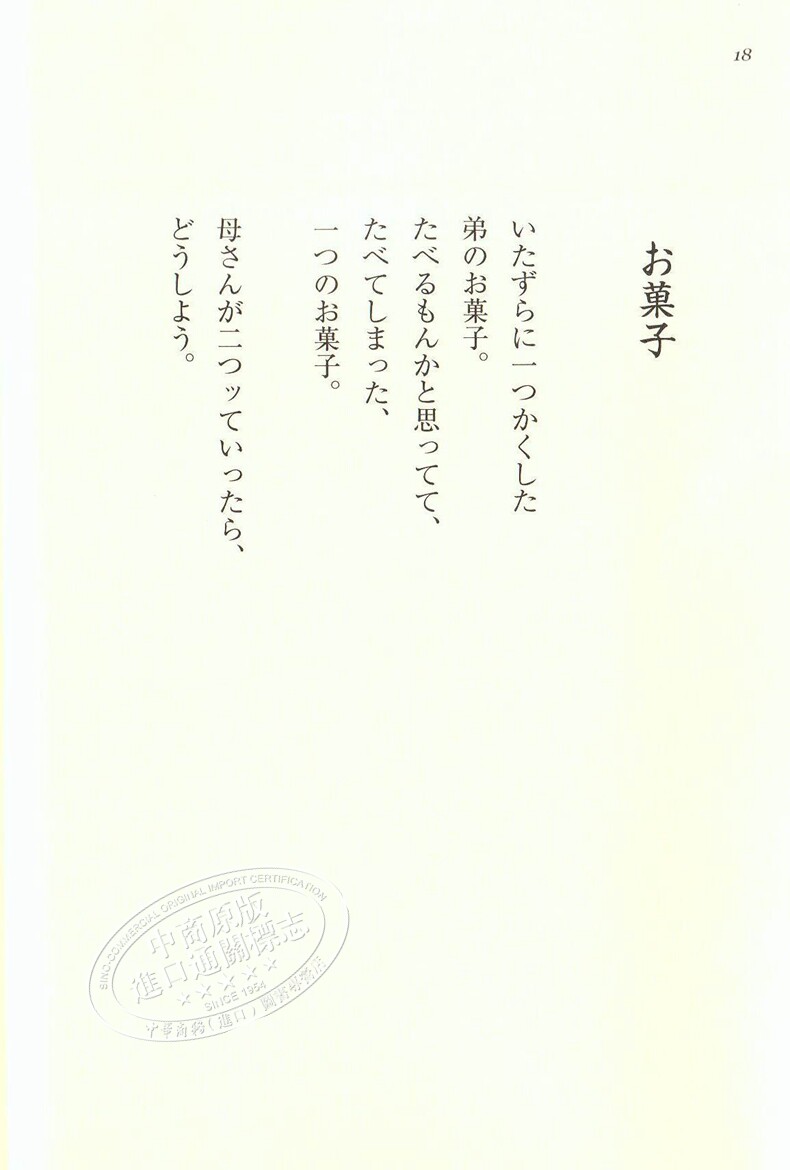 18
お菓子
いたずらに一つかくした
弟のお菓子。
たべるもんかと思ってて、
たべてしまった、
一つのお菓子。
母さんが二つッていったら、
どうしよう。
SINO-COMMERCIAL ORIGINAL IMPORT CERTIFICATION
中商原版
進口通關標志
★★★★★
SINCE 1954